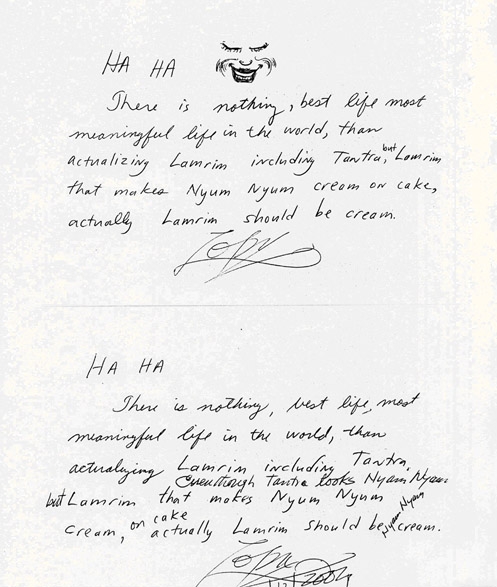 HA HA
There is nothing, best life most
meaningful life in the world, than
actualizing Lamrim including Tantra, but Lamrim
that makes Nyum Nyum cream on cake,
actually Lamrim should be cream.
Zopa
HA HA
There is nothing, best life, most
meaningful life in the world, than
actualizing Lamrim including Tantra,
Eventhough Tantra looks Nyam Nyam
but Lamrim that makes Nyum Nyum
cream, on cake actually Lamrim should be Nyam Nyam cream.
Zopa